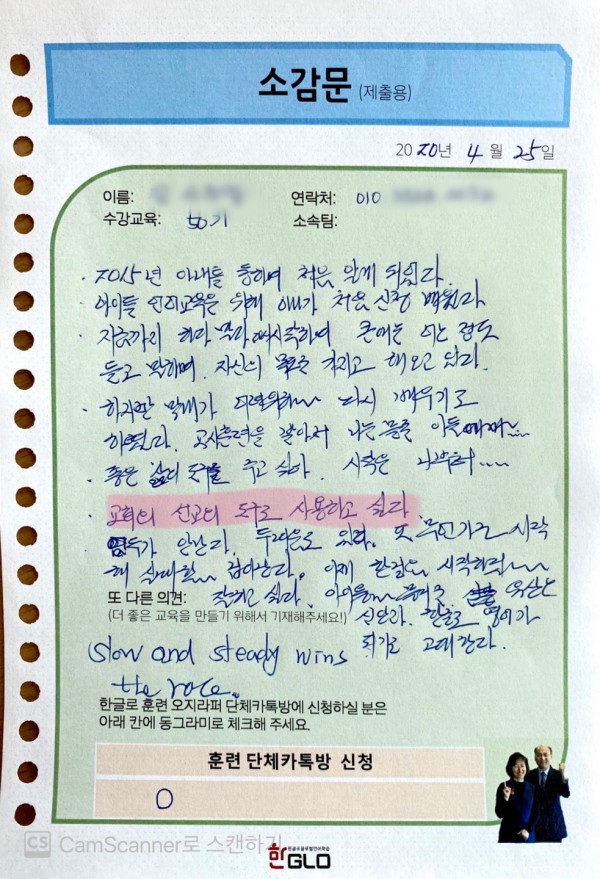 소감문 (제출용)
2020년 4월 25일
이름: 연락처: 010
수강교육: 50기 소속팀:
· 2015년 아내를 통하여 처음 알게 되었다.
· 아이들 언어교육을 위해 애가 처음 신청 배웠다
· 지금까지 하다 말다 하며 큰애는 어느 정도
듣고 말하며, 자신의 목표를 가지고 해오고 있다.
· 하지만 막내가 다시 배우기로
하였다. 교사훈련을 받아서 나는 아들에게~~
· 좋은 삶의 도구를 주고 싶다. 시작은 나부터....
· 교회의 선교의 도구로 사용하고 싶다.
엄두가 안난다. 두려움도 있다. 또 무언가를 시작
해 한걸음 시작하려~~
또 다른 의견: 잘하고 싶다. 아이들
(더 좋은 교육을 만들기 위해서 기재해주세요!) 신난다. 한글로 영어가
Slow and steady wins 되기를 고대한다.
the race.
한글로 훈련 오지라퍼 단체카톡방에 신청하실 분은
아래 칸에 동그라미로 체크해 주세요.
훈련 단체카톡방 신청
O
CS CamScanner로 스캔하기
한글로 글로벌언어학습
한GLO